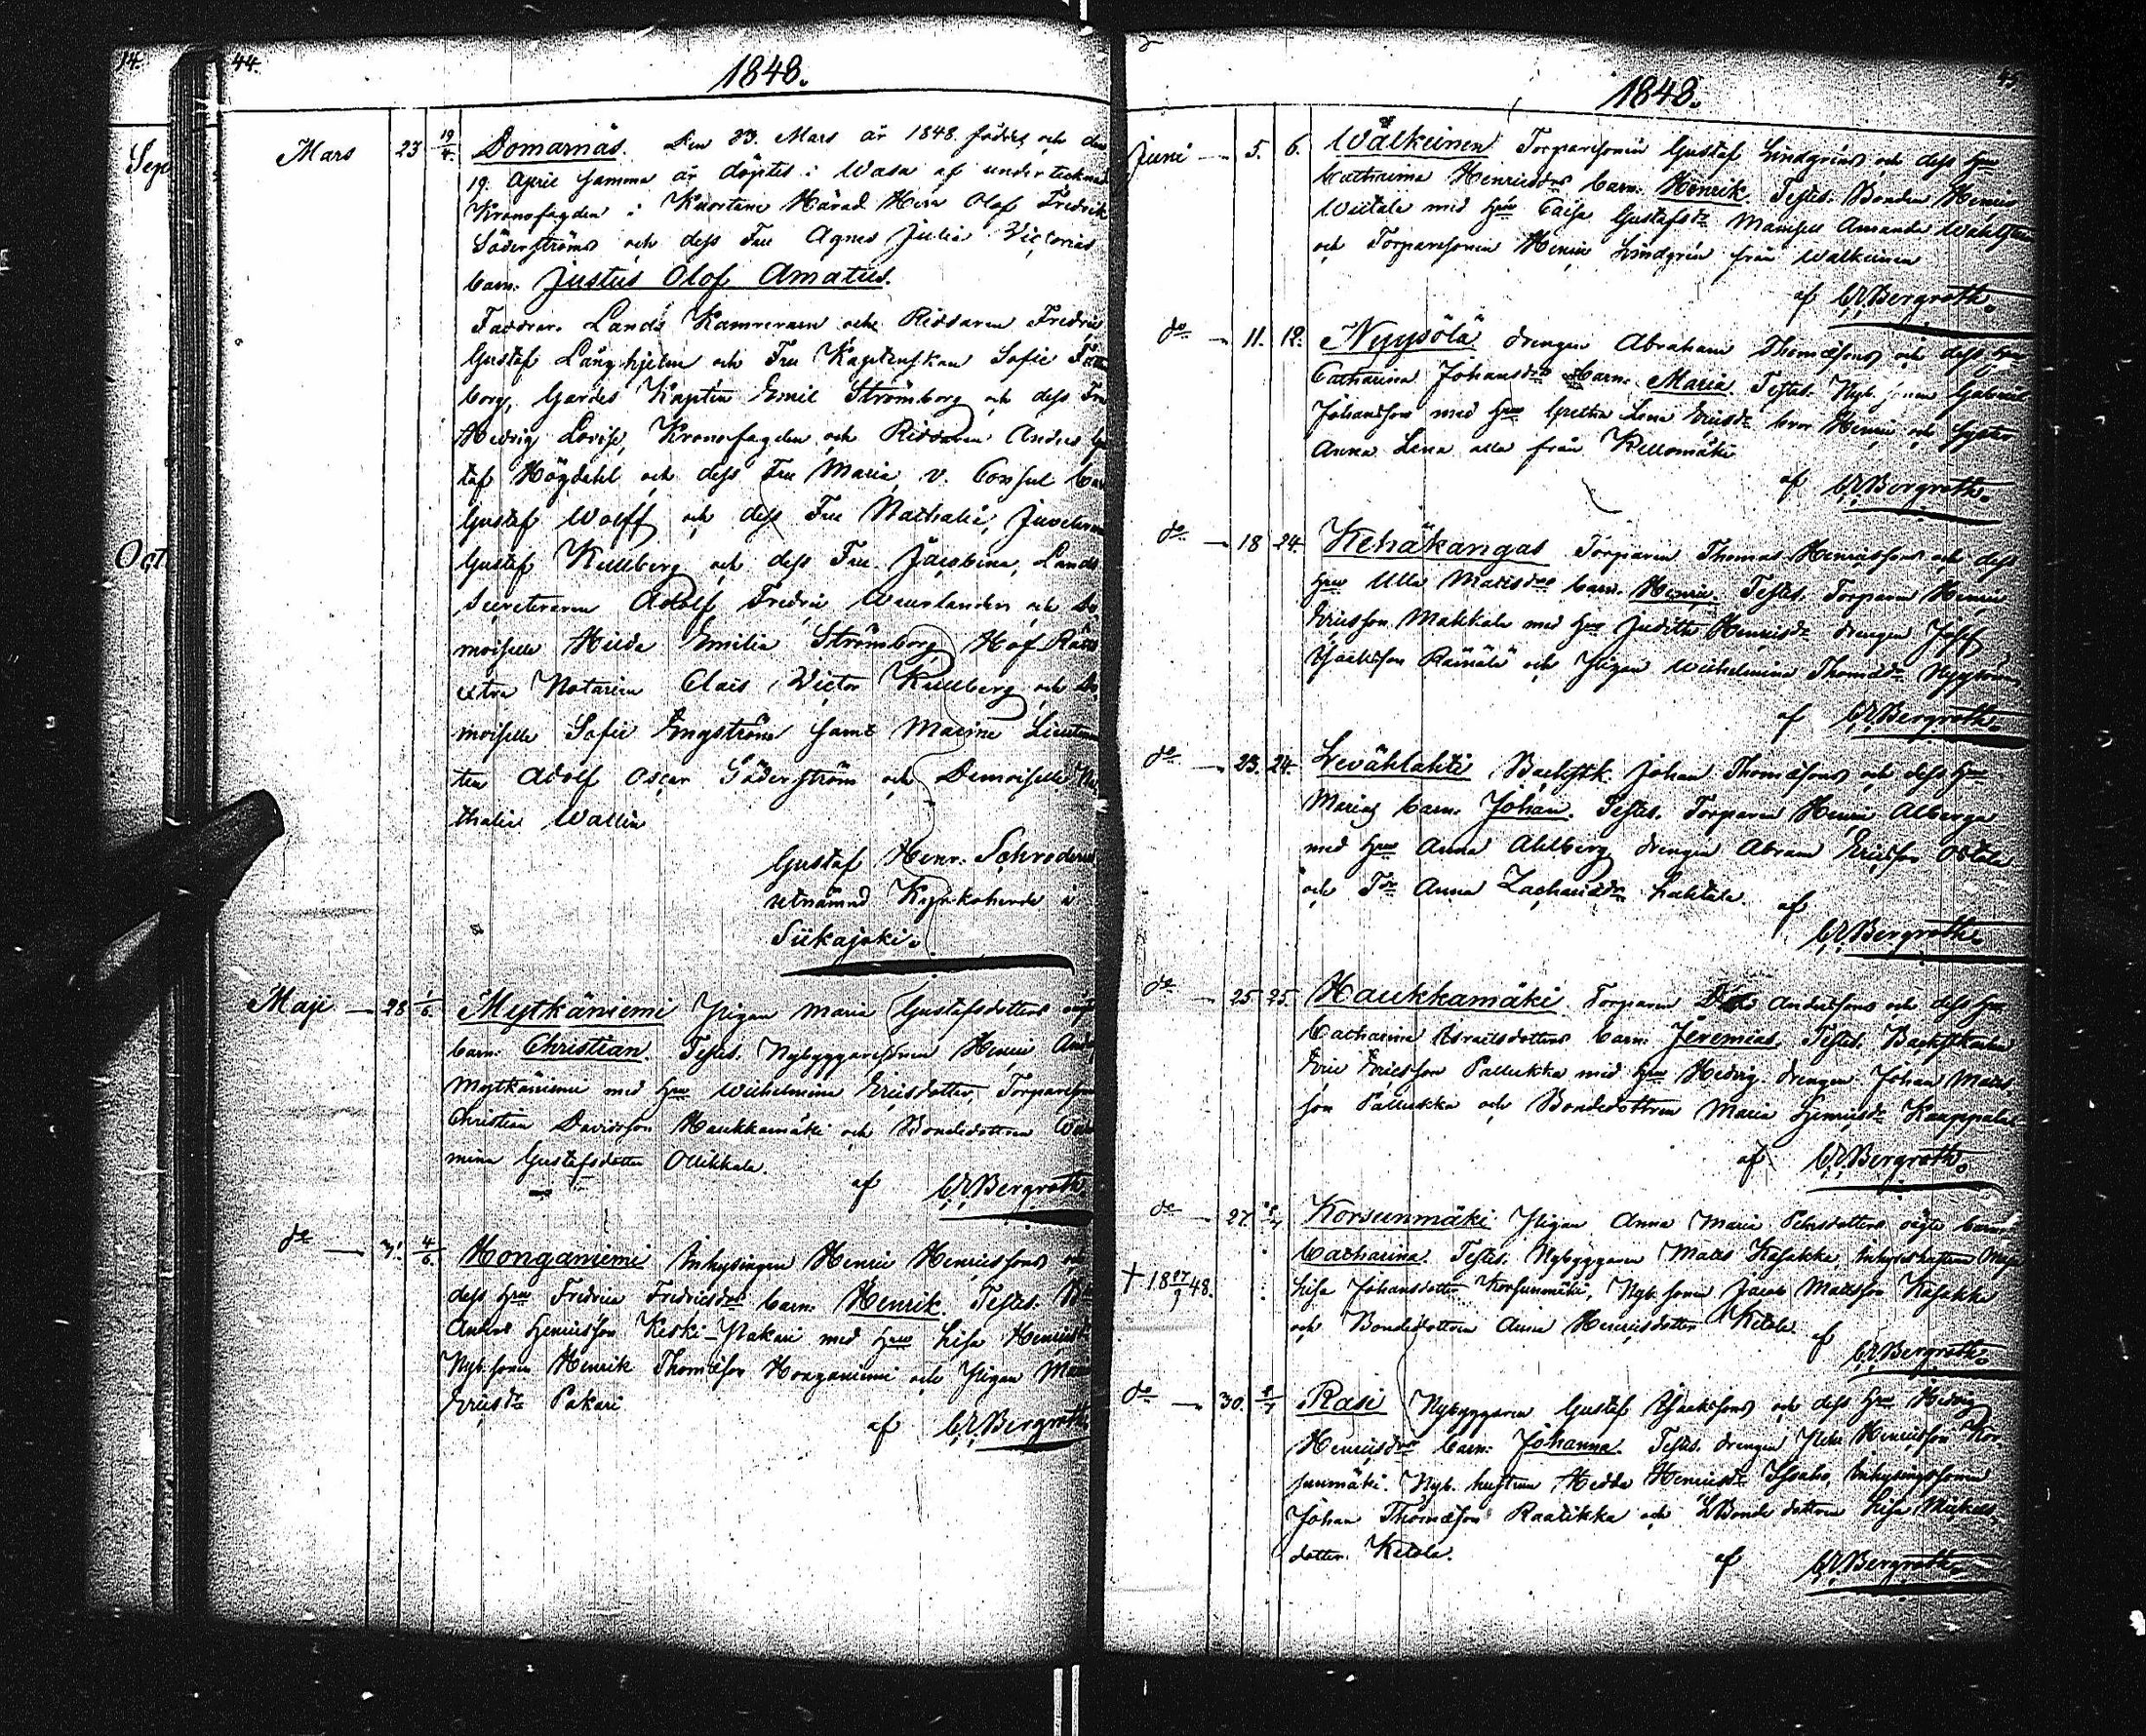 14.
Sep
Oct
44.
1848.
Mars 23 19/4. Domarnäs. Den 23. Mars år 1848 föddes och den
19 April samma år döptes i Wasa af undertecknad
Kronofogden i Kuortane Härad Herr Olof Fredrik
Söderströms och dess Fru Agnes Julia Victorias
barn. Justus Olof Amatus.
Faddrar. Lands Kamreraren och Riddaren Fredric
Gustaf Långhjelm och Fru Kaptenskan Sofie
borg, Gardes Kapten Emil Strömborg och dess Fru
Hedvig Lovise, Kronofogden och Riddaren Anders
taf Högdahl och dess Fru Maria, v. Consul Carl
Gustaf Wolff och dess Fru Nathalie,
Gustaf Kullberg och dess Fru Jacobina, Lands
Secreteraren Adolf Fredric och De
moiselle Hilda Emilia Strömborg, Hof Rätts
extra Notarien Claës Victor Kullberg och De
moiselle Sofie Engström samt Marine Lieutnan
ten Adolf Oscar Söderström och Demoiselle Na
thalie Wallin
Gustaf Henr. Schroderus
utnämnd Kyrkoherde i
Siikajoki.
Maji 28 1/6. Mytkäniemi Pigan Maria Gustafsdotters
barn. Christian. Testes. Nybyggaresonen Henric
Mytkäniemi med Hru Wilhelmina Ericsdotter,
Christian Davidsson Haukkamäki och Bondedottren
mina Gustafsdotter Ollikkala.
af C.E. Bergroth.
do 31. 4/6. Honganiemi Inhysingen Henric Henricssons och
dess Hru Fredrica Fredricsdrs barn. Henrik. Testes.
Anders Henricsson Keski-Pakari med Hru Lisa
Nyb. sonen Henrik Thomasson Honganiemi och Pigan
Ericsdr Pakari
af C.E. Bergroth
45.
1848.
Juni 5. 6. Wälkeinen Torparesonen Gustaf Lindgréns och dess Hru
Catharina Henricsdrs barn. Henrik. Testes. Bonden Henric
Wiitala med Hru Caisa Gustafsdr Mamsell Amanda
och Torparesonen Henric Lindgrén från Walkeinen
af C.E. Bergroth.
do 11. 12. Nyysölä drengen Abraham Thomassons och dess Hru
Catharina Johansdrs barn. Maria. Testes. Nyb. sonen Gabriel
Johansson med Hru Gretha Lena Ericsdr bror Henric och syster
Anna Lena alla från Kellomäki
af C.E. Bergroth.
do 18 24. Kehäkangas Torparen Thomas Henricssons och dess
Hru Ulla Matsdrs barn. Henric. Testes. Torparen Henric
Ericsson Mahkala med Hru Judith Henricsdr drengen Josef
Isacksson och Pigan Wilhelmina Thomasdr
af C.E. Bergroth.
do 23. 24. Levählahti Backstk. Johan Thomassons och dess Hru
Marias barn. Johan. Testes. Torparen Henric Alberga
med Hru Anna Ahlberg drengen Abram Ericsson
och Anna Zachariasdr
af
C.E. Bergroth.
do 25. 25. Haukkamäki. Torparen Andersons och dess Hru
Catharina Israelsdotters barn. Jeremias. Testes. Backstkarlen
Eric Ericsson Pallukka med Hru Hedvig. drengen Johan Mats
son Pallukka och Bondedottren Maria Henricsdr
af C.E. Bergroth.
do 27. Korsunmäki Pigan Anna Maria Pehrsdotters oägta barn
Catharina. Testes. Nybyggaren Matts Kasakka,
† 18 17/9 48. Lisa Johansdotter Korsunmäki, Nyb. sonen Jacob Matsson Kasakka
och Bondedottren Anna Henricsdotter Ketola
af
C.E. Bergroth.
do 30. Rasi Nybyggaren Gustaf Isackssons och dess Hru Hedvig
Henricsdrs barn. Johanna. Testes. drengen Pehr Henricsson Kor
sunmäki. Nyb. hustrun Hedda Henricsdr Inhysingssonen
Johan Thomasson Raatikka och Bonde dottren Lisa Michels
dotter Ketola.
af C.E. Bergroth.